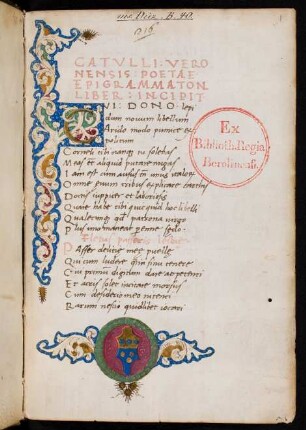 ms. Diez. B. 40.
CATVLLI VERO
NENSIS POETAE
EPIGRAMMATON
LIBER INCIPIT
VI DONO lepi
dum novum libellum
Arido modo pumice ex
politum
Corneli tibi namque tu solebas
Meas esse aliquid putare nugas
Iam est cum ausus es unus
Omne evum tribus explicare
Doctis iuppiter et laboriosis
Quare habe tibi quicquid hoc libelli
Qualecumque quod patrona virgo
Plus uno maneat perenne seclo
Passer delitie mee puelle
Qui cum ludere quem sinu tenere
Cui primum digitum dare
Et acris solet incitare morsus
Cum desiderio meo
Karum nescio quid libet iocari
Ex
Biblioth. Regia
Berolinensi.